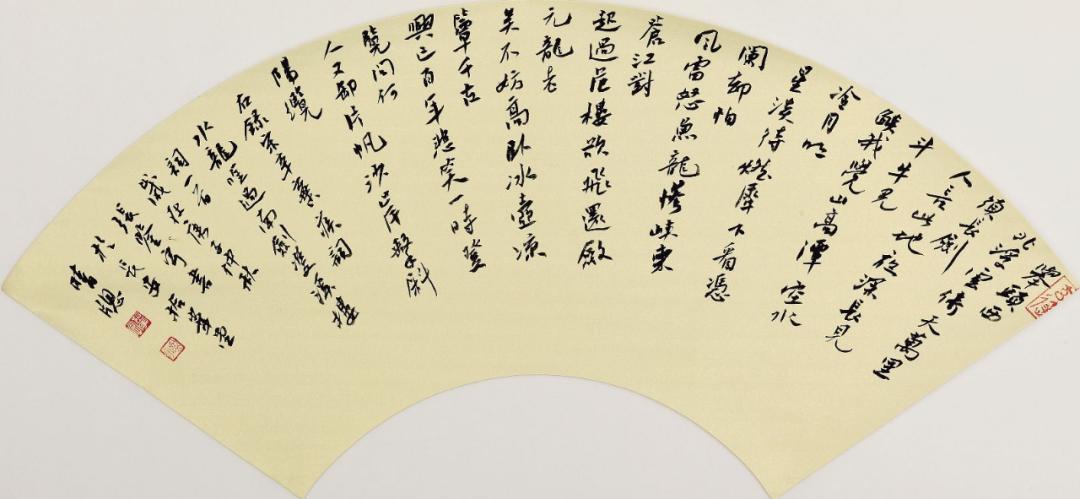 舉頭西
北浮雲倚天萬里
須長劍
人言此地夜深長見
斗牛光
燄我覺山高潭空水
冷月明
星淡待燃犀下看憑
闌却怕
風雷怒魚龍慘峽束
蒼江對
起過危樓欲飛還斂
元龍老
矣不妨高臥冰壺涼
簟千古
興亡百年悲笑一時登
覽問何
人又卸片帆沙岸繫斜
陽纜
右錄宋辛棄疾詞
水龍吟過南劍雙溪樓
詞一首庚子仲秋
於長安
晴窗